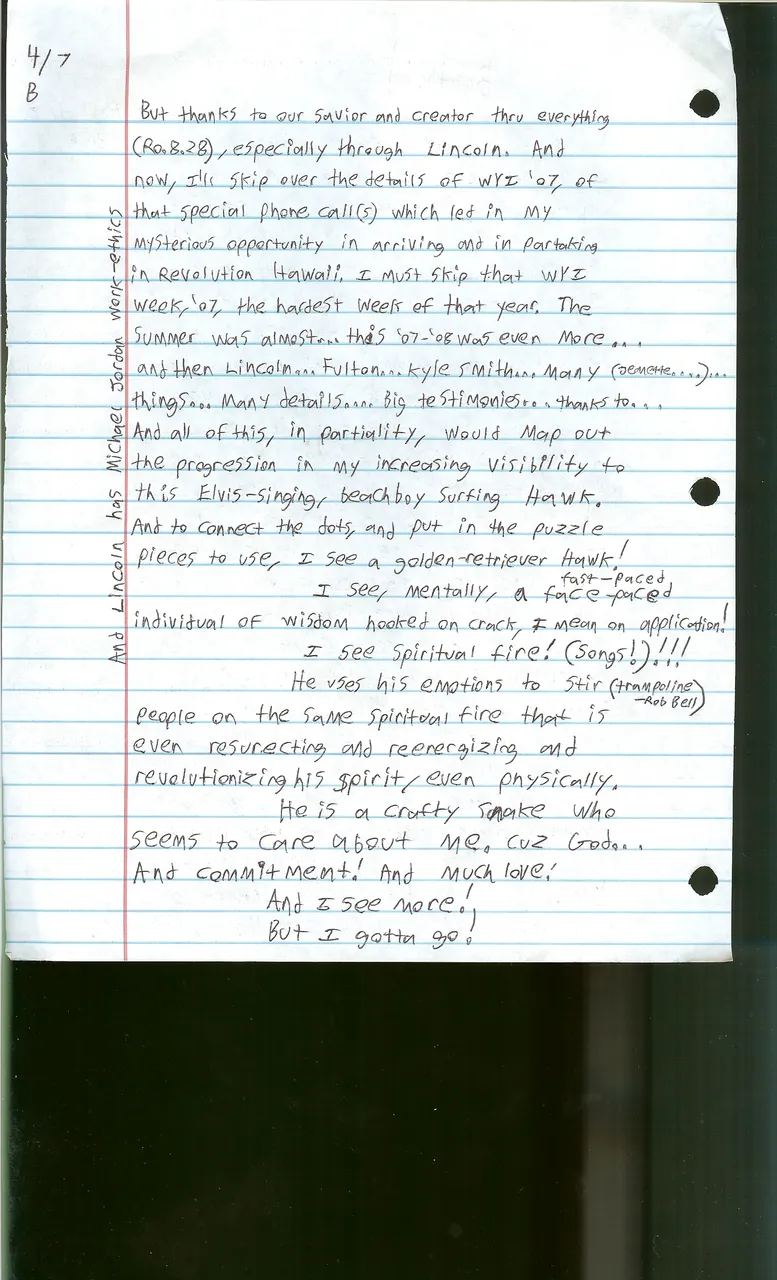 4/7
B
But thanks to our savior and creator thru everything
(Ro.8.28), especially through Lincoln. And
now, I'll skip over the details of WYI '07, of
that special phone call(s) which led in my
mysterious opportunity in arriving and in partaking
in Revolution Hawaii. I must skip that WYI
week, '07, the hardest week of that year. The
summer was almost.... this '07-'08 was even more...
and then Lincoln.... Fulton.... Kyle Smith.... Many (Demette....)...
things.... Many details..... Big testimonies.... thanks to....
And all of this, in partiality, would map out
the progression in my increasing visibility to
this Elvis-singing, beachboy surfing Hawk.
And to connect the dots, and put in the puzzle
pieces to use, I see a golden-retriever Hawk!
fast-paced
I see, mentally, a face-paced
individual of wisdom hooked on crack, I mean on application!
I see spiritual fire! (Songs!)!!!
He uses his emotions to stir (trampoline
-Rob Bell)
people on the same spiritual fire that is
even resurecting and reenergizing and
revolutionizing his spirit, even physically.
He is a crafty snake who
seems to care about me. cuz God...
And commitment! And much love!
And I see more!
But I gotta go!
And Lincoln has Michael Jordan work-ethics